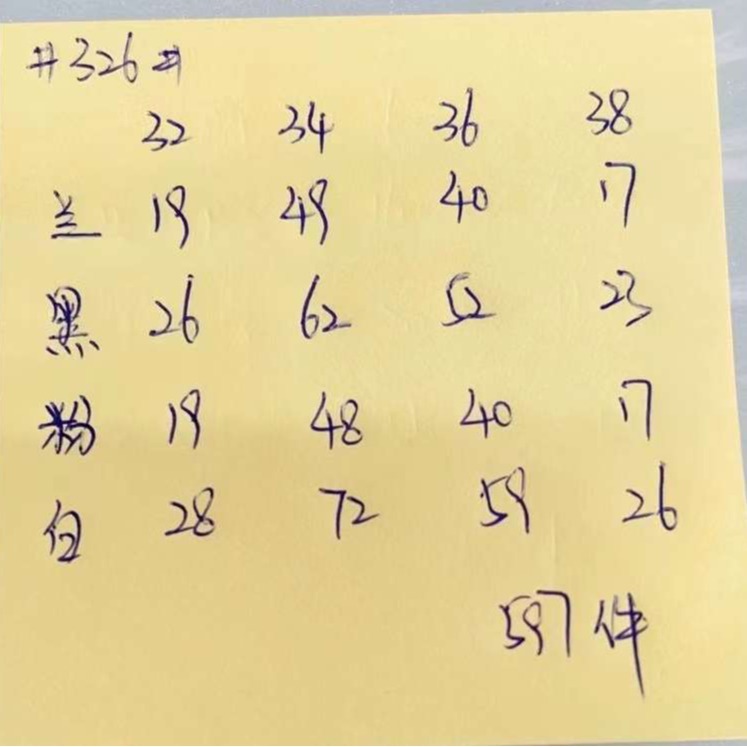 #326#
32 34 36 38
兰 19 49 40 17
黑 26 62 52 23
粉 19 48 40 17
白 28 72 59 26
597件